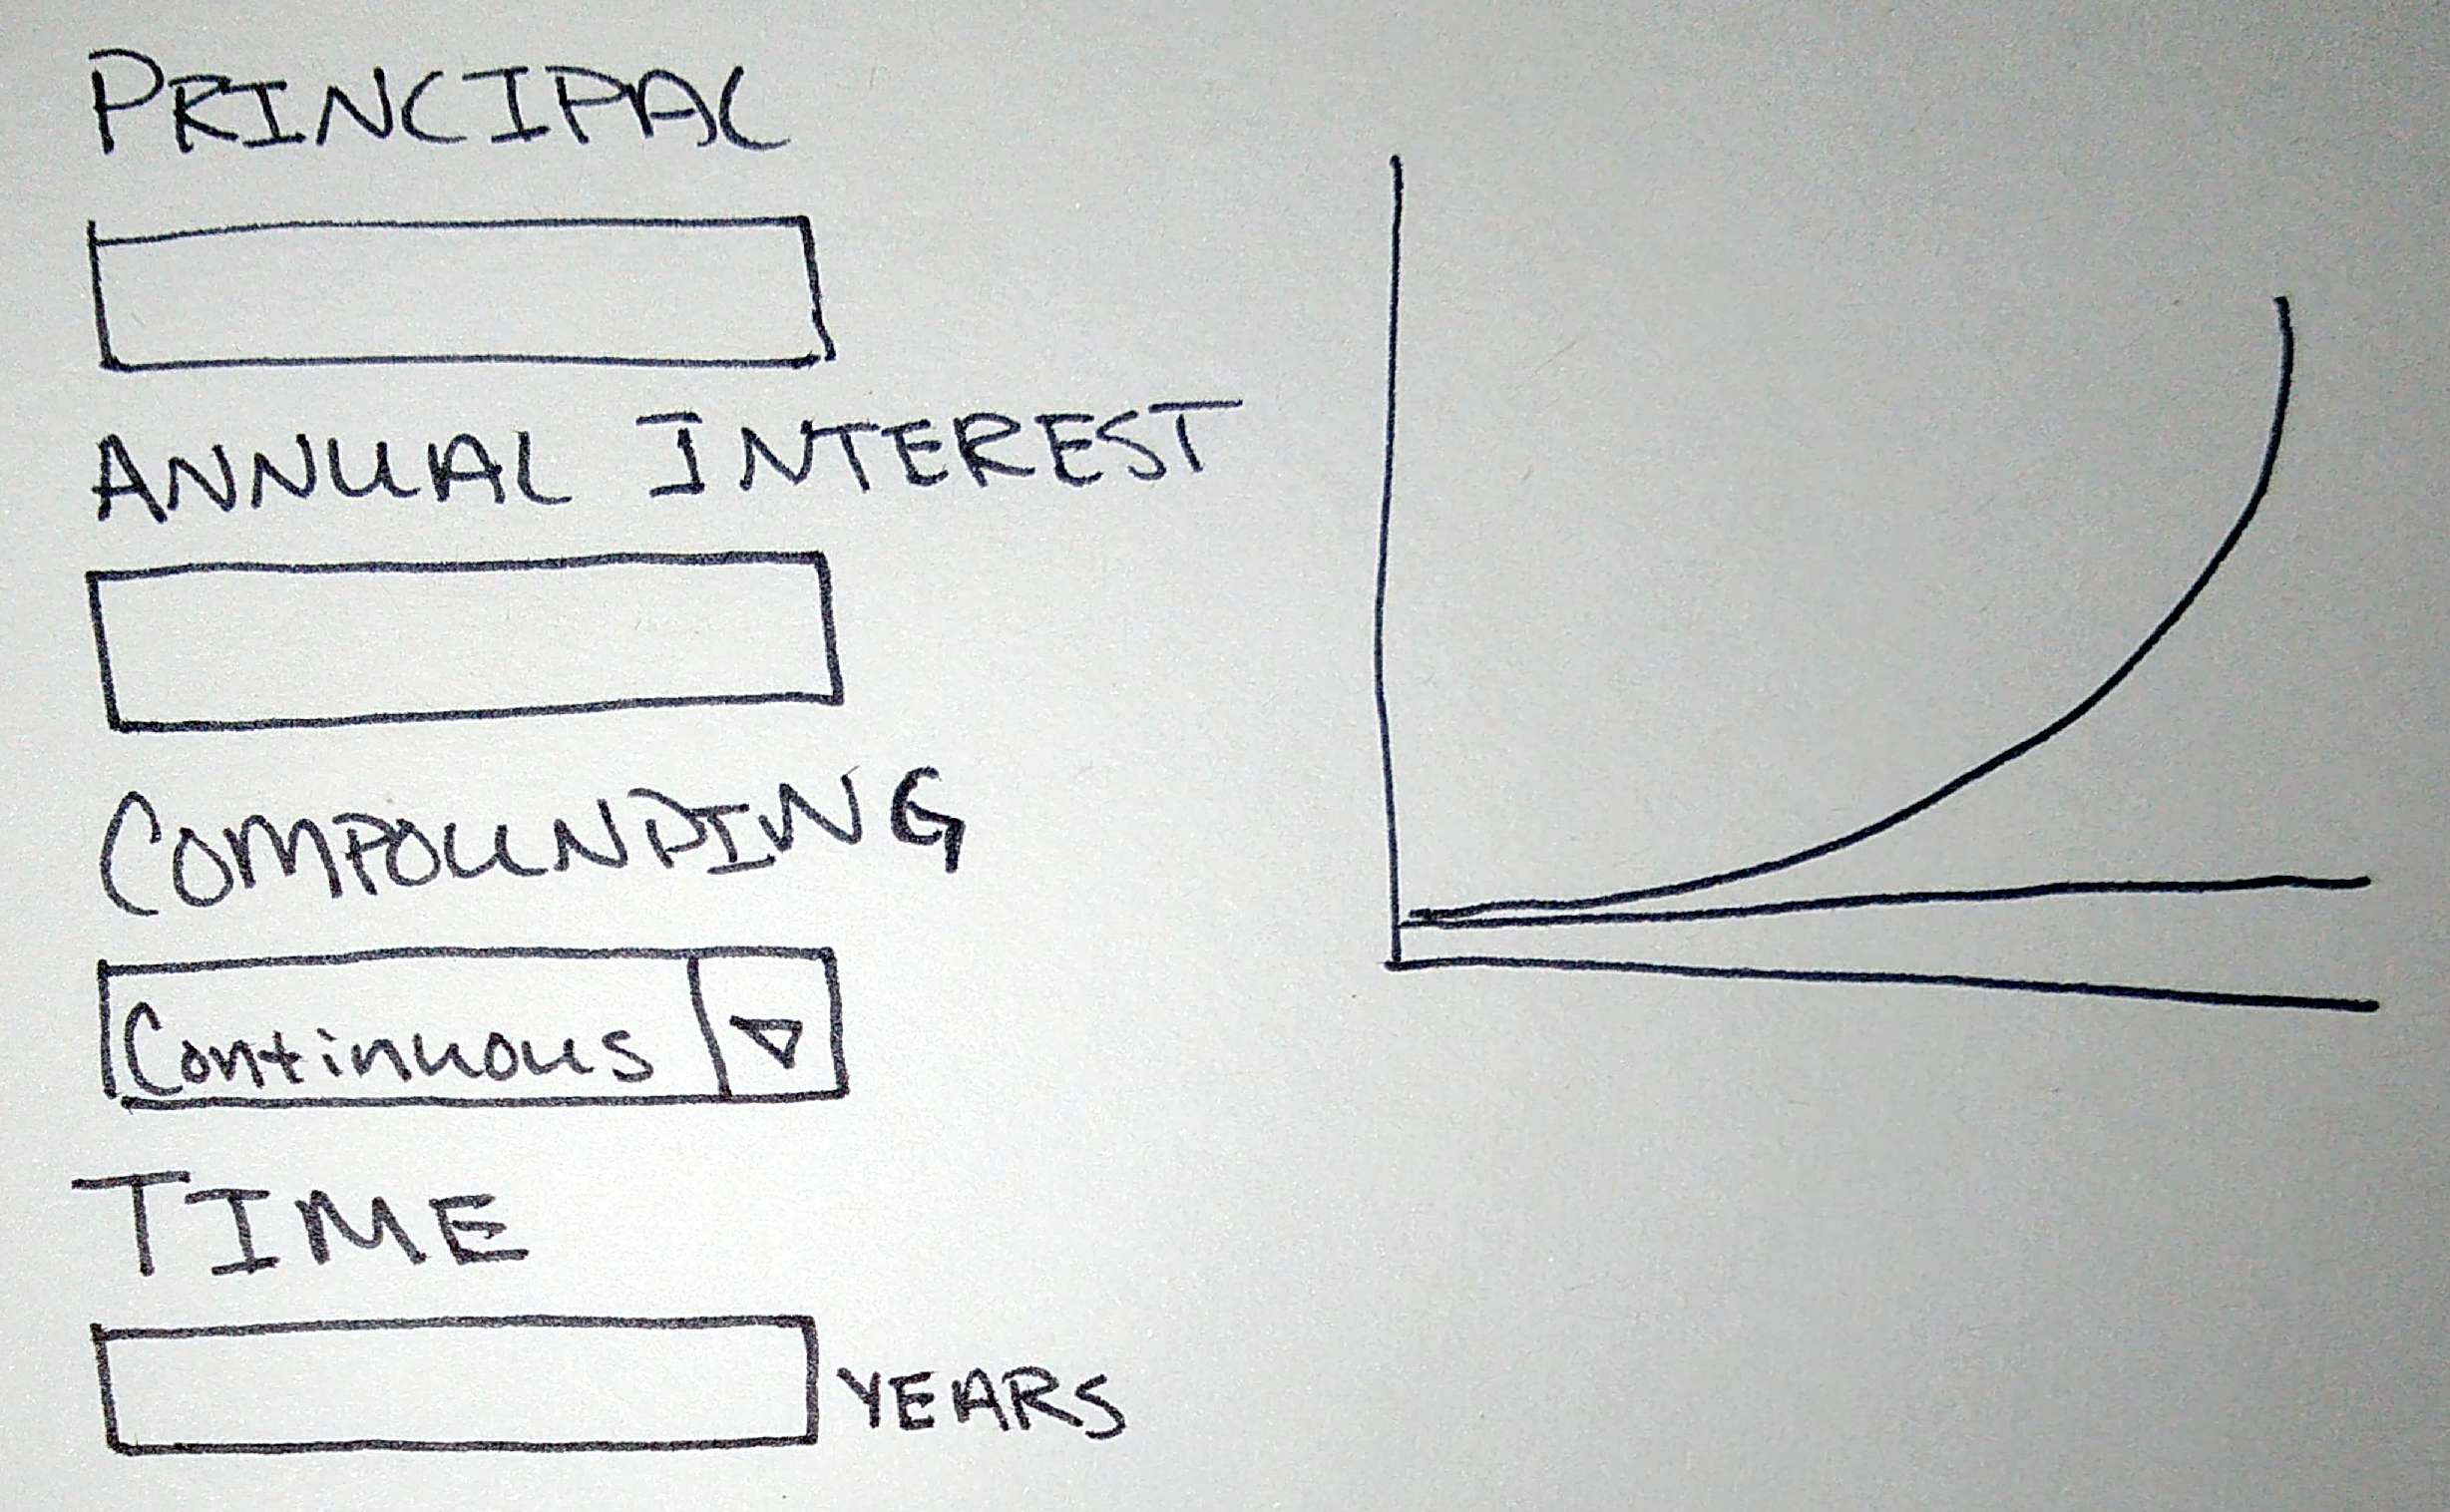 PRINCIPAL
ANNUAL INTEREST
COMPOUNDING
Continuous
TIME
YEARS